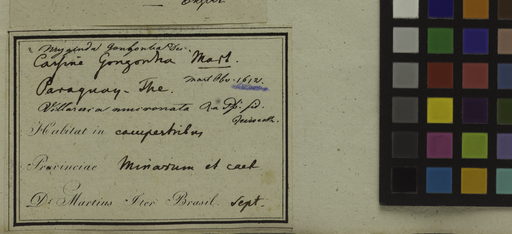 Myginda Gongonha
Cassine Gongonha Mart.
Mart. Obs. 1612.
Paraguay-The.
Villaresia mucronata
Habitat in campestribus
Provinciae Minarum et caet
Dr. Martius Iter Brasil. Sept.